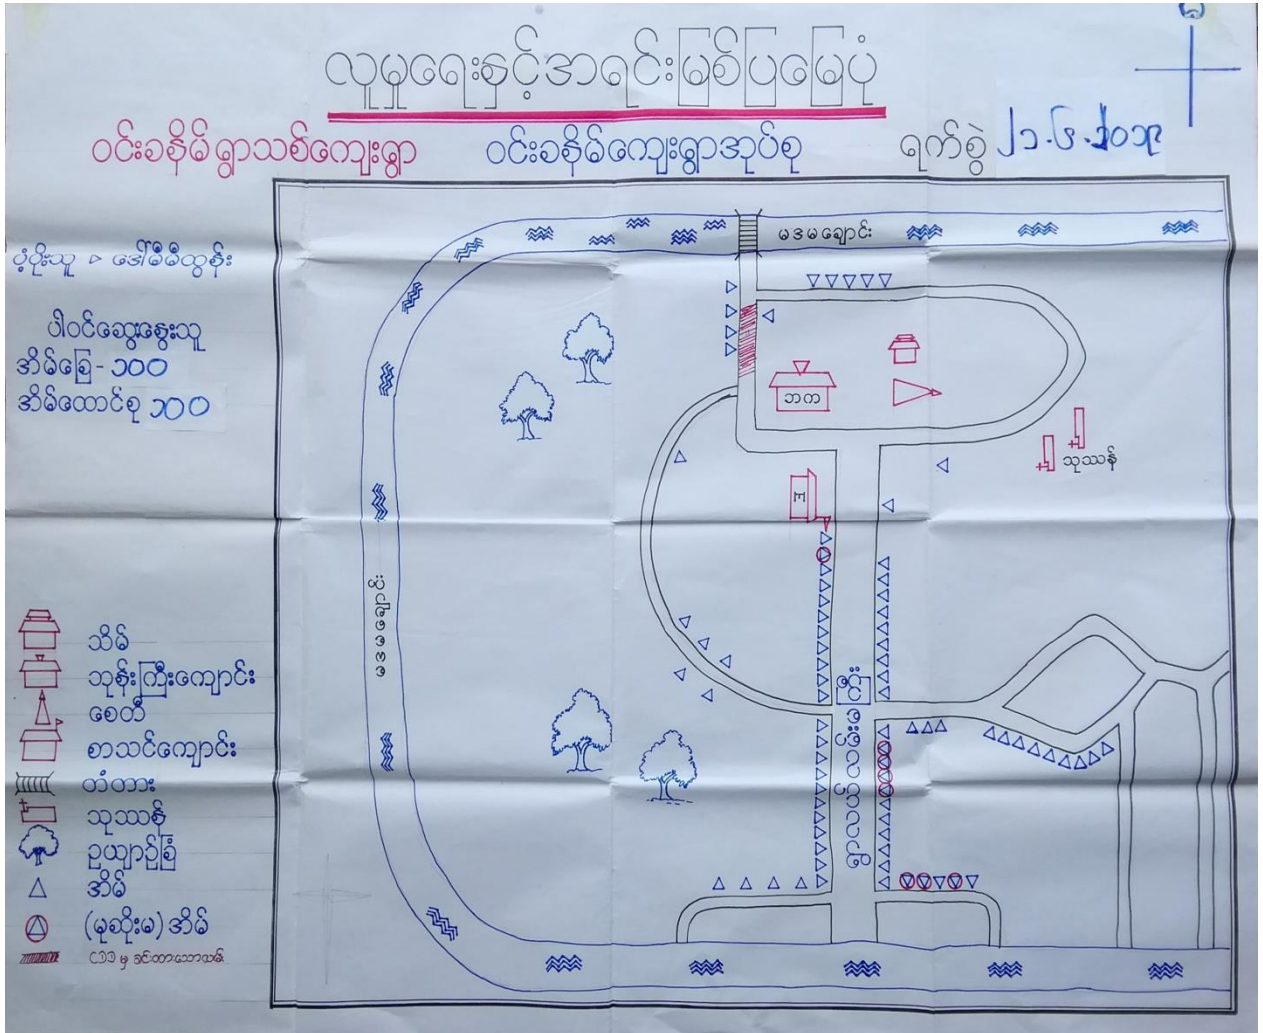 မ
လူမှုရေးနှင့်အရင်းမြစ်ပြမြေပုံ
ဝင်းခနိမ်ရွာသစ်ကျေးရွာ ဝင်းခနိမ်ကျေးရွာအုပ်စု ရက်စွဲ ၂၁.၆.၂၀၁၉
ပံ့ပိုးသူ ▹ ဒေါ်မီမီထွန်း
ပါဝင်ဆွေးနွေးသူ
အိမ်ခြေ - ၁၀၀
အိမ်ထောင်စု ၁၀၀
မဒမချောင်း
ဘက
သုဿန်
E
ရွာလယ်လမ်းမကြီး
သိမ်
ဘုန်းကြီးကျောင်း
စေတီ
စာသင်ကျောင်း
တံတား
သုဿန်
ဥယျာဉ်ခြံ
အိမ်
(မုဆိုးမ) အိမ်
CDD မှ ခင်းထားသောလမ်း